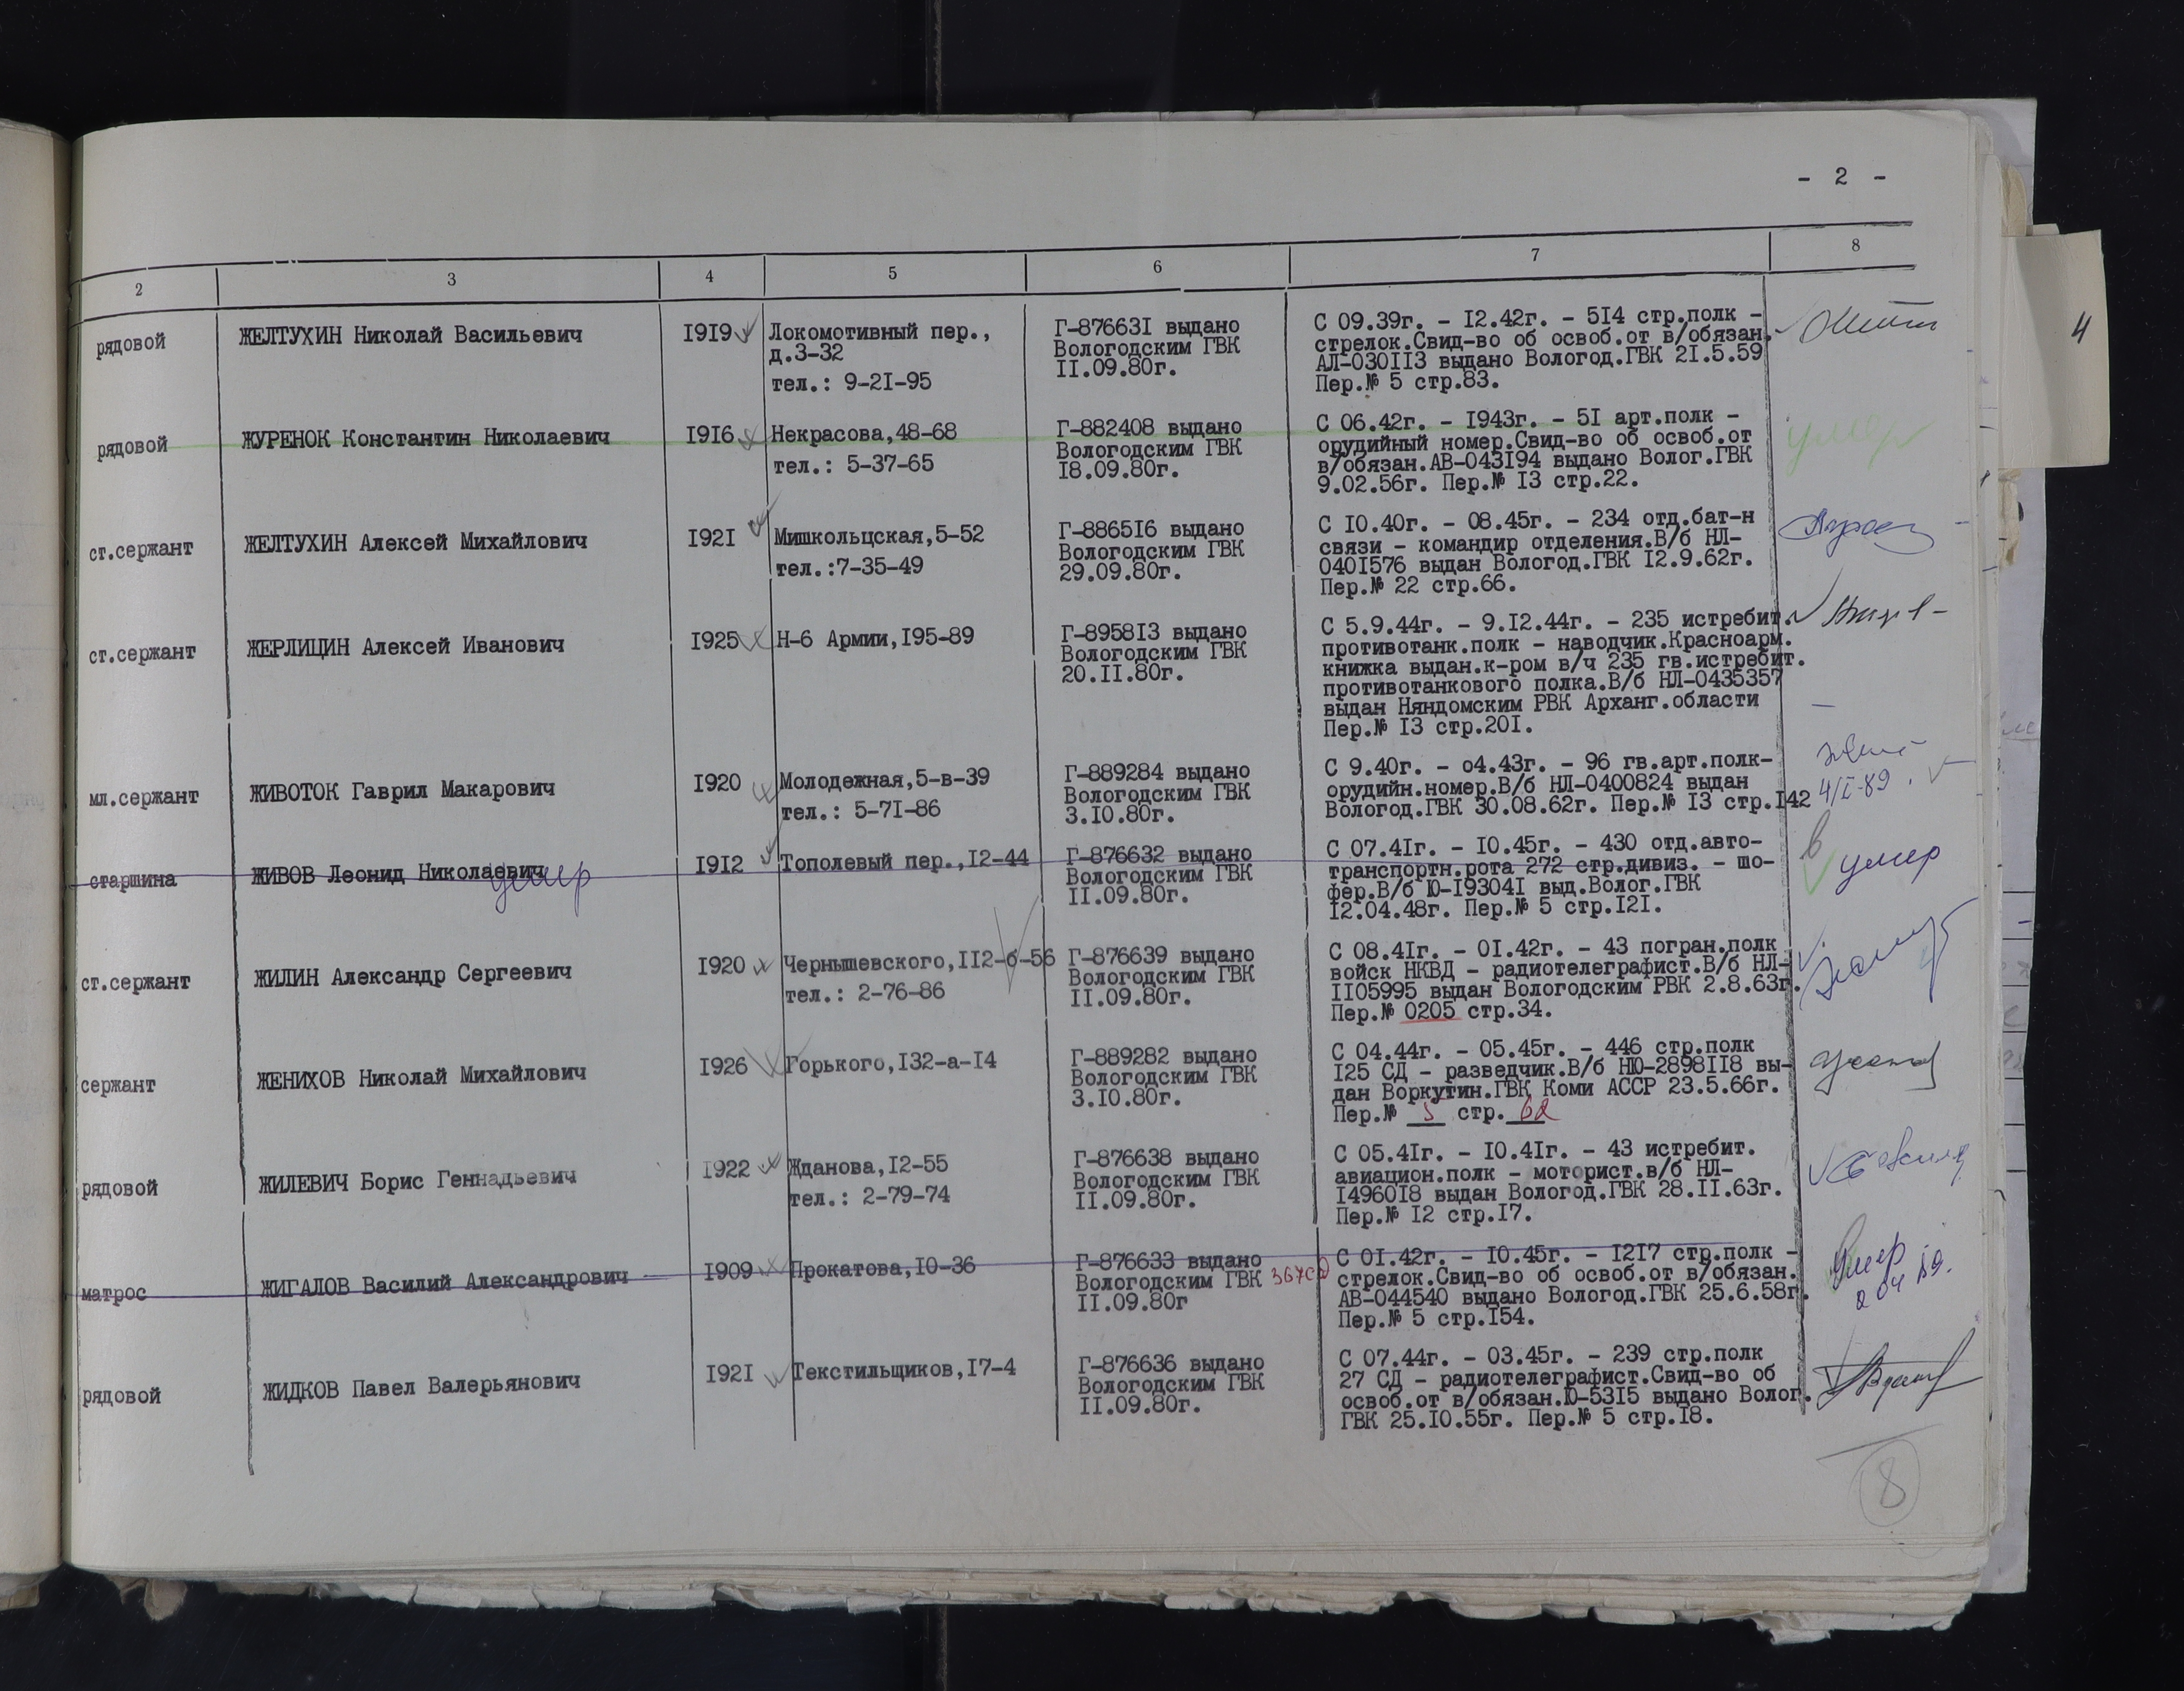 - 2 -
2 3 4 5 6 7 8
4
рядовой ЖЕЛТУХИН Николай Васильевич I9I9 Локомотивный пер., С 09.39г. - I2.42г. - 5I4 стр.полк -
д.3-32
тел.: 9-2I-95
Г-87663I выдано
Вологодским ГВК
II.09.80г.
стрелок.Свид-во об освоб.от в/обязан.
АЛ-030II3 выдано Вологод.ГВК 2I.5.59
Пер.№ 5 стр.83.
рядовой ЖУРЕНОК Константин Николаевич I9I6 Некрасова,48-68
тел.: 5-37-65
Г-882408 выдано
Вологодским ГВК
I8.09.80г.
С 06.42г. - I943г. - 5I арт.полк -
орудийный номер.Свид-во об освоб.от
в/обязан.АВ-043I94 выдано Волог.ГВК
9.02.56г. Пер.№ I3 стр.22.
умер
ст.сержант ЖЕЛТУХИН Алексей Михайлович I92I Мишкольцская,5-52
тел.:7-35-49
Г-8865I6 выдано
Вологодским ГВК
29.09.80г.
С I0.40г. - 08.45г. - 234 отд.бат-н
связи - командир отделения.В/б НЛ-
040I576 выдан Вологод.ГВК I2.9.62г.
Пер.№ 22 стр.66.
ст.сержант ЖЕРЛИЦИН Алексей Иванович I925 Н-6 Армии,I95-89
Г-8958I3 выдано
Вологодским ГВК
20.II.80г.
С 5.9.44г. - 9.I2.44г. - 235 истребит.
противотанк.полк - наводчик.Красноарм.
книжка выдан.к-ром в/ч 235 гв.истребит.
противотанкового полка.В/б НЛ-0435357
выдан Няндомским РВК Арханг.области
Пер.№ I3 стр.20I.
мл.сержант ЖИВОТОК Гаврил Макарович I920 Молодежная,5-в-39
тел.: 5-7I-86
Г-889284 выдано
Вологодским ГВК
3.I0.80г.
С 9.40г. - о4.43г. - 96 гв.арт.полк-
орудийн.номер.В/б НЛ-0400824 выдан
Вологод.ГВК 30.08.62г. Пер.№ I3 стр.I42
старшина ЖИВОВ Леонид Николаевич умер I9I2 Тополевый пер.,I2-44
Г-876632 выдано
Вологодским ГВК
II.09.80г.
С 07.4Iг. - I0.45г. - 430 отд.авто-
транспортн.рота 272 стр.дивиз. - шо-
фер.В/б Ю-I9304I выд.Волог.ГВК
I2.04.48г. Пер.№ 5 стр.I2I.
умер
ст.сержант ЖИЛИН Александр Сергеевич I920 Чернышевского,II2-б-56
тел.: 2-76-86
Г-876639 выдано
Вологодским ГВК
II.09.80г.
С 08.4Iг. - 0I.42г. - 43 погран.полк
войск НКВД - радиотелеграфист.В/б НЛ-
II05995 выдан Вологодским РВК 2.8.63г.
Пер.№ 0205 стр.34.
сержант ЖЕНИХОВ Николай Михайлович I926 Горького,I32-а-I4
Г-889282 выдано
Вологодским ГВК
3.I0.80г.
С 04.44г. - 05.45г. - 446 стр.полк
I25 СД - разведчик.В/б НЮ-2898II8 вы-
дан Воркутин.ГВК Коми АССР 23.5.66г.
Пер.№ 5 стр. 62
рядовой ЖИЛЕВИЧ Борис Геннадьевич I922 Жданова,I2-55
тел.: 2-79-74
Г-876638 выдано
Вологодским ГВК
II.09.80г.
С 05.4Iг. - I0.4Iг. - 43 истребит.
авиацион.полк - моторист.в/б НЛ-
I4960I8 выдан Вологод.ГВК 28.II.63г.
Пер.№ I2 стр.I7.
матрос ЖИГАЛОВ Василий Александрович I909 Прокатова,I0-36
Г-876633 выдано
Вологодским ГВК 367сд
II.09.80г
С 0I.42г. - I0.45г. - I2I7 стр.полк -
стрелок.Свид-во об освоб.от в/обязан.
АВ-044540 выдано Вологод.ГВК 25.6.58г.
Пер.№ 5 стр.I54.
умер
рядовой ЖИДКОВ Павел Валерьянович I92I Текстильщиков,I7-4
Г-876636 выдано
Вологодским ГВК
II.09.80г.
С 07.44г. - 03.45г. - 239 стр.полк
27 СД - радиотелеграфист.Свид-во об
освоб.от в/обязан.Ю-53I5 выдано Волог.
ГВК 25.I0.55г. Пер.№ 5 стр.I8.
8